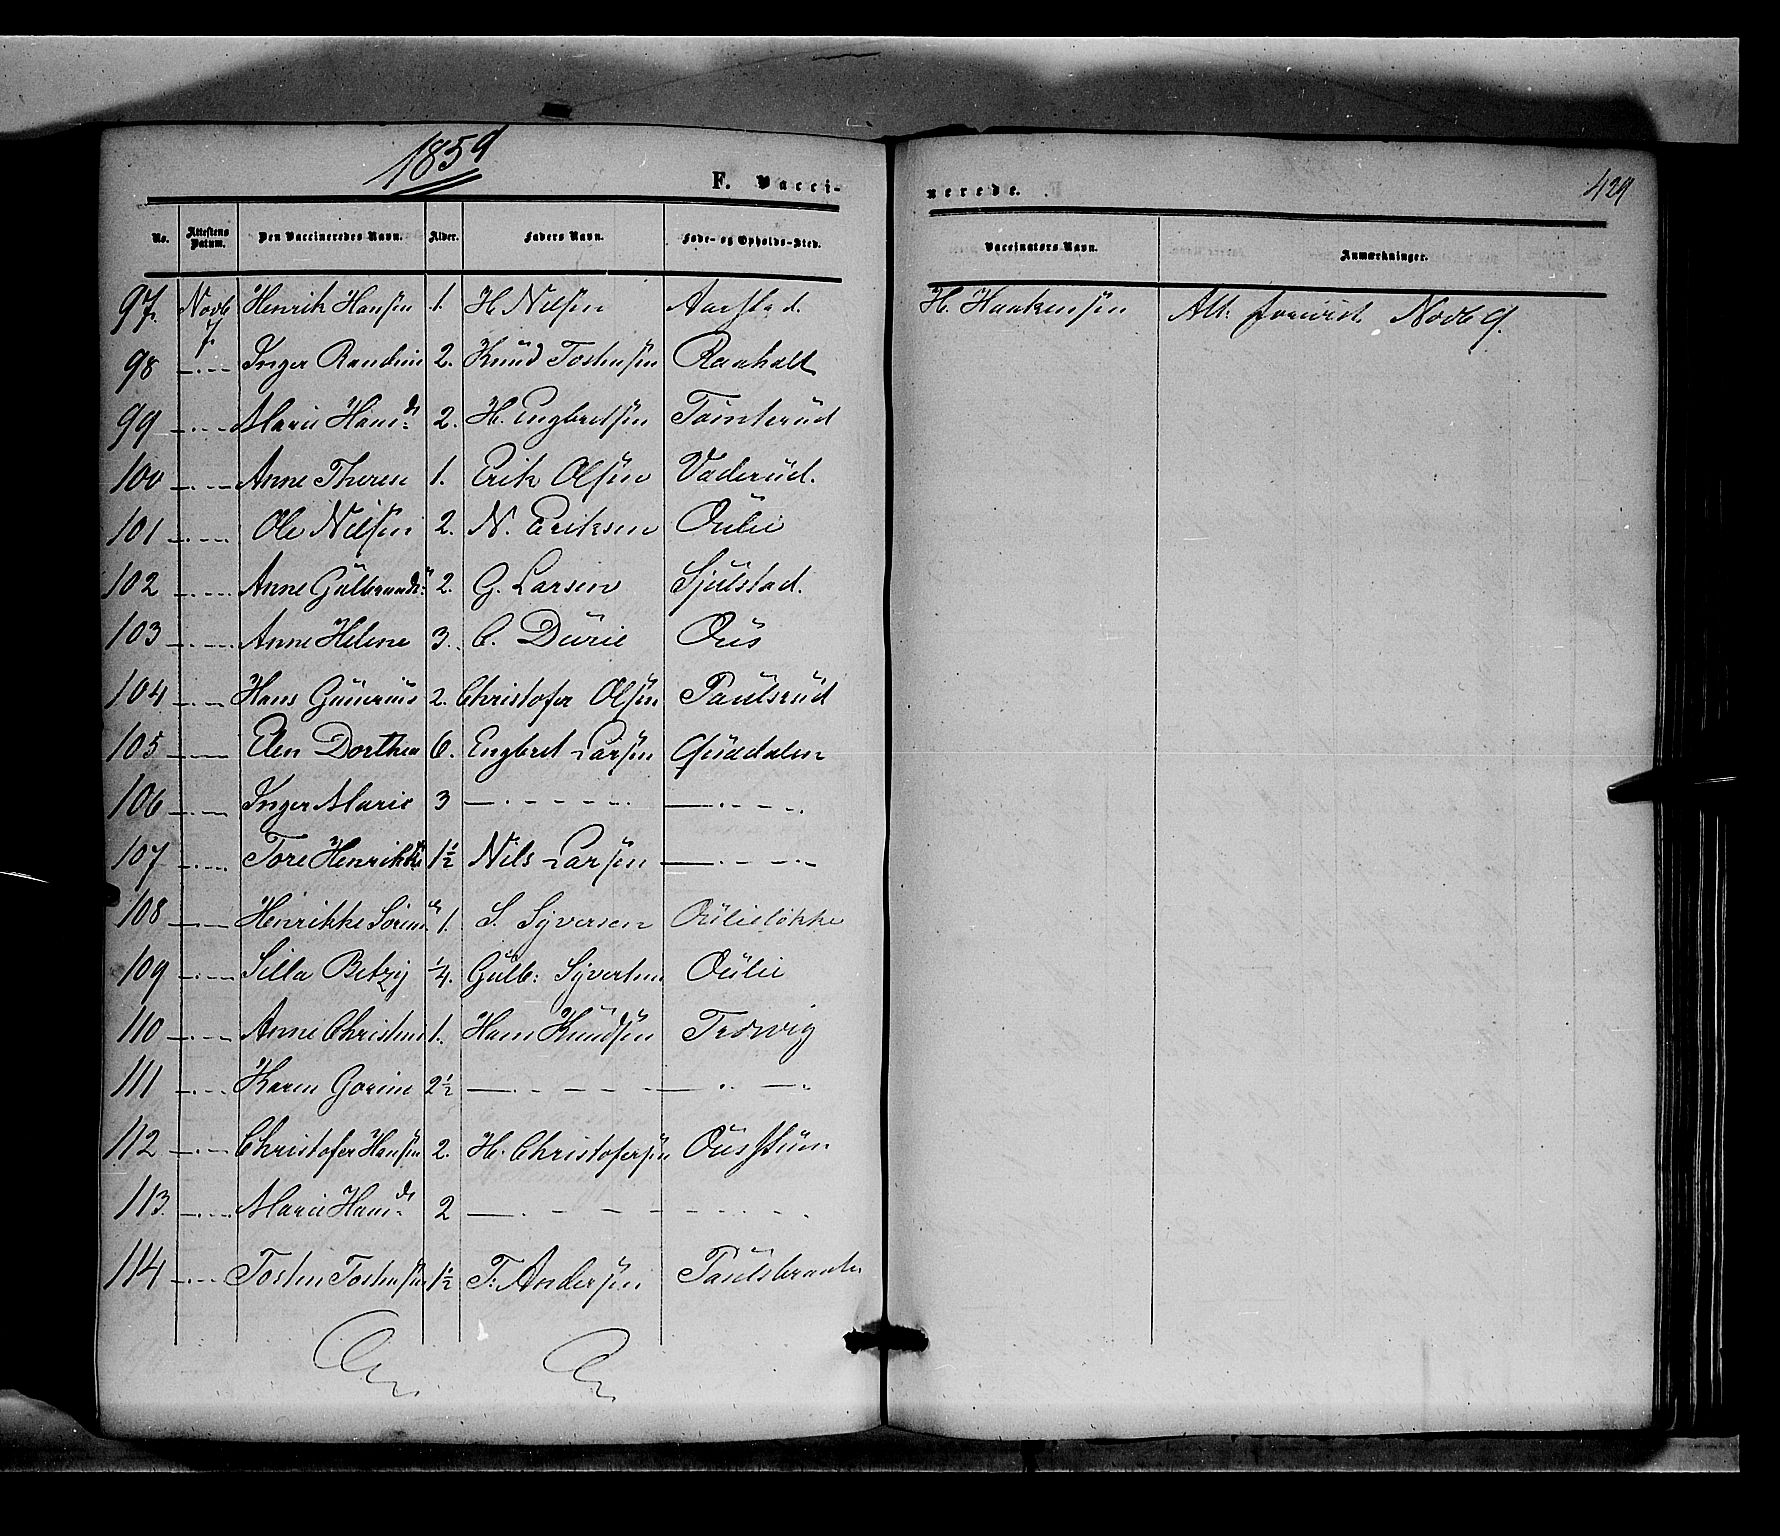 1859
F. Vacci-
nerede.
429
No. Attestens Datum. Den Vaccineredes Navn. Alder. Faders Navn. Føde- og Opholds-Sted. Vaccinators Navn. Anmærkninger.
97. Novb 7 Henrik Hansen 1. H. Nilsen Aarstad. H. Haakensen Att: Novb 9.
98 —.— Inger Randine 2. Knud Tostensen Raahalt
99 —.— Marie Hansd: 2. H. Engbretsen Tømterud
100 —.— Anne Therese 1. Erik Olsen Vaderud.
101 —.— Ole Nilsen 2. N. Eriksen Oulie
102 —.— Anne Gulbrandsd: 2. G. Larsen Sjulstad.
103 —.— Anne Helene 3. C. Durie Ous
104 —.— Hans Gunerius 2. Christofer Olsen Paulsrud
105 —.— Elen Dorthea 6. Engbret Larsen Quadalen
106 —.— Inger Marie 3 —.---- —.---.
107 —.— Tore Henrikke 1½ Nils Larsen —.---
108 —.— Henrikke Sørensd: 1. S. Syversen Oulieløkke
109 —.— Silla Betzy ¼. Gulb: Syvertsen Oulie
110 —.— Anne Christine 1. Hans Knudsen Trøwig
111 —.— Karen Gorine 2½ —.---- — .. —.
112 —.— Christofer Hansen 2. H. Christofersen Ousstuen
113. —.— Marie Hansd: 2 —.---- ---.
114 —.— Tosten Tostensen 1½ T. Andersen Paulsbraaten